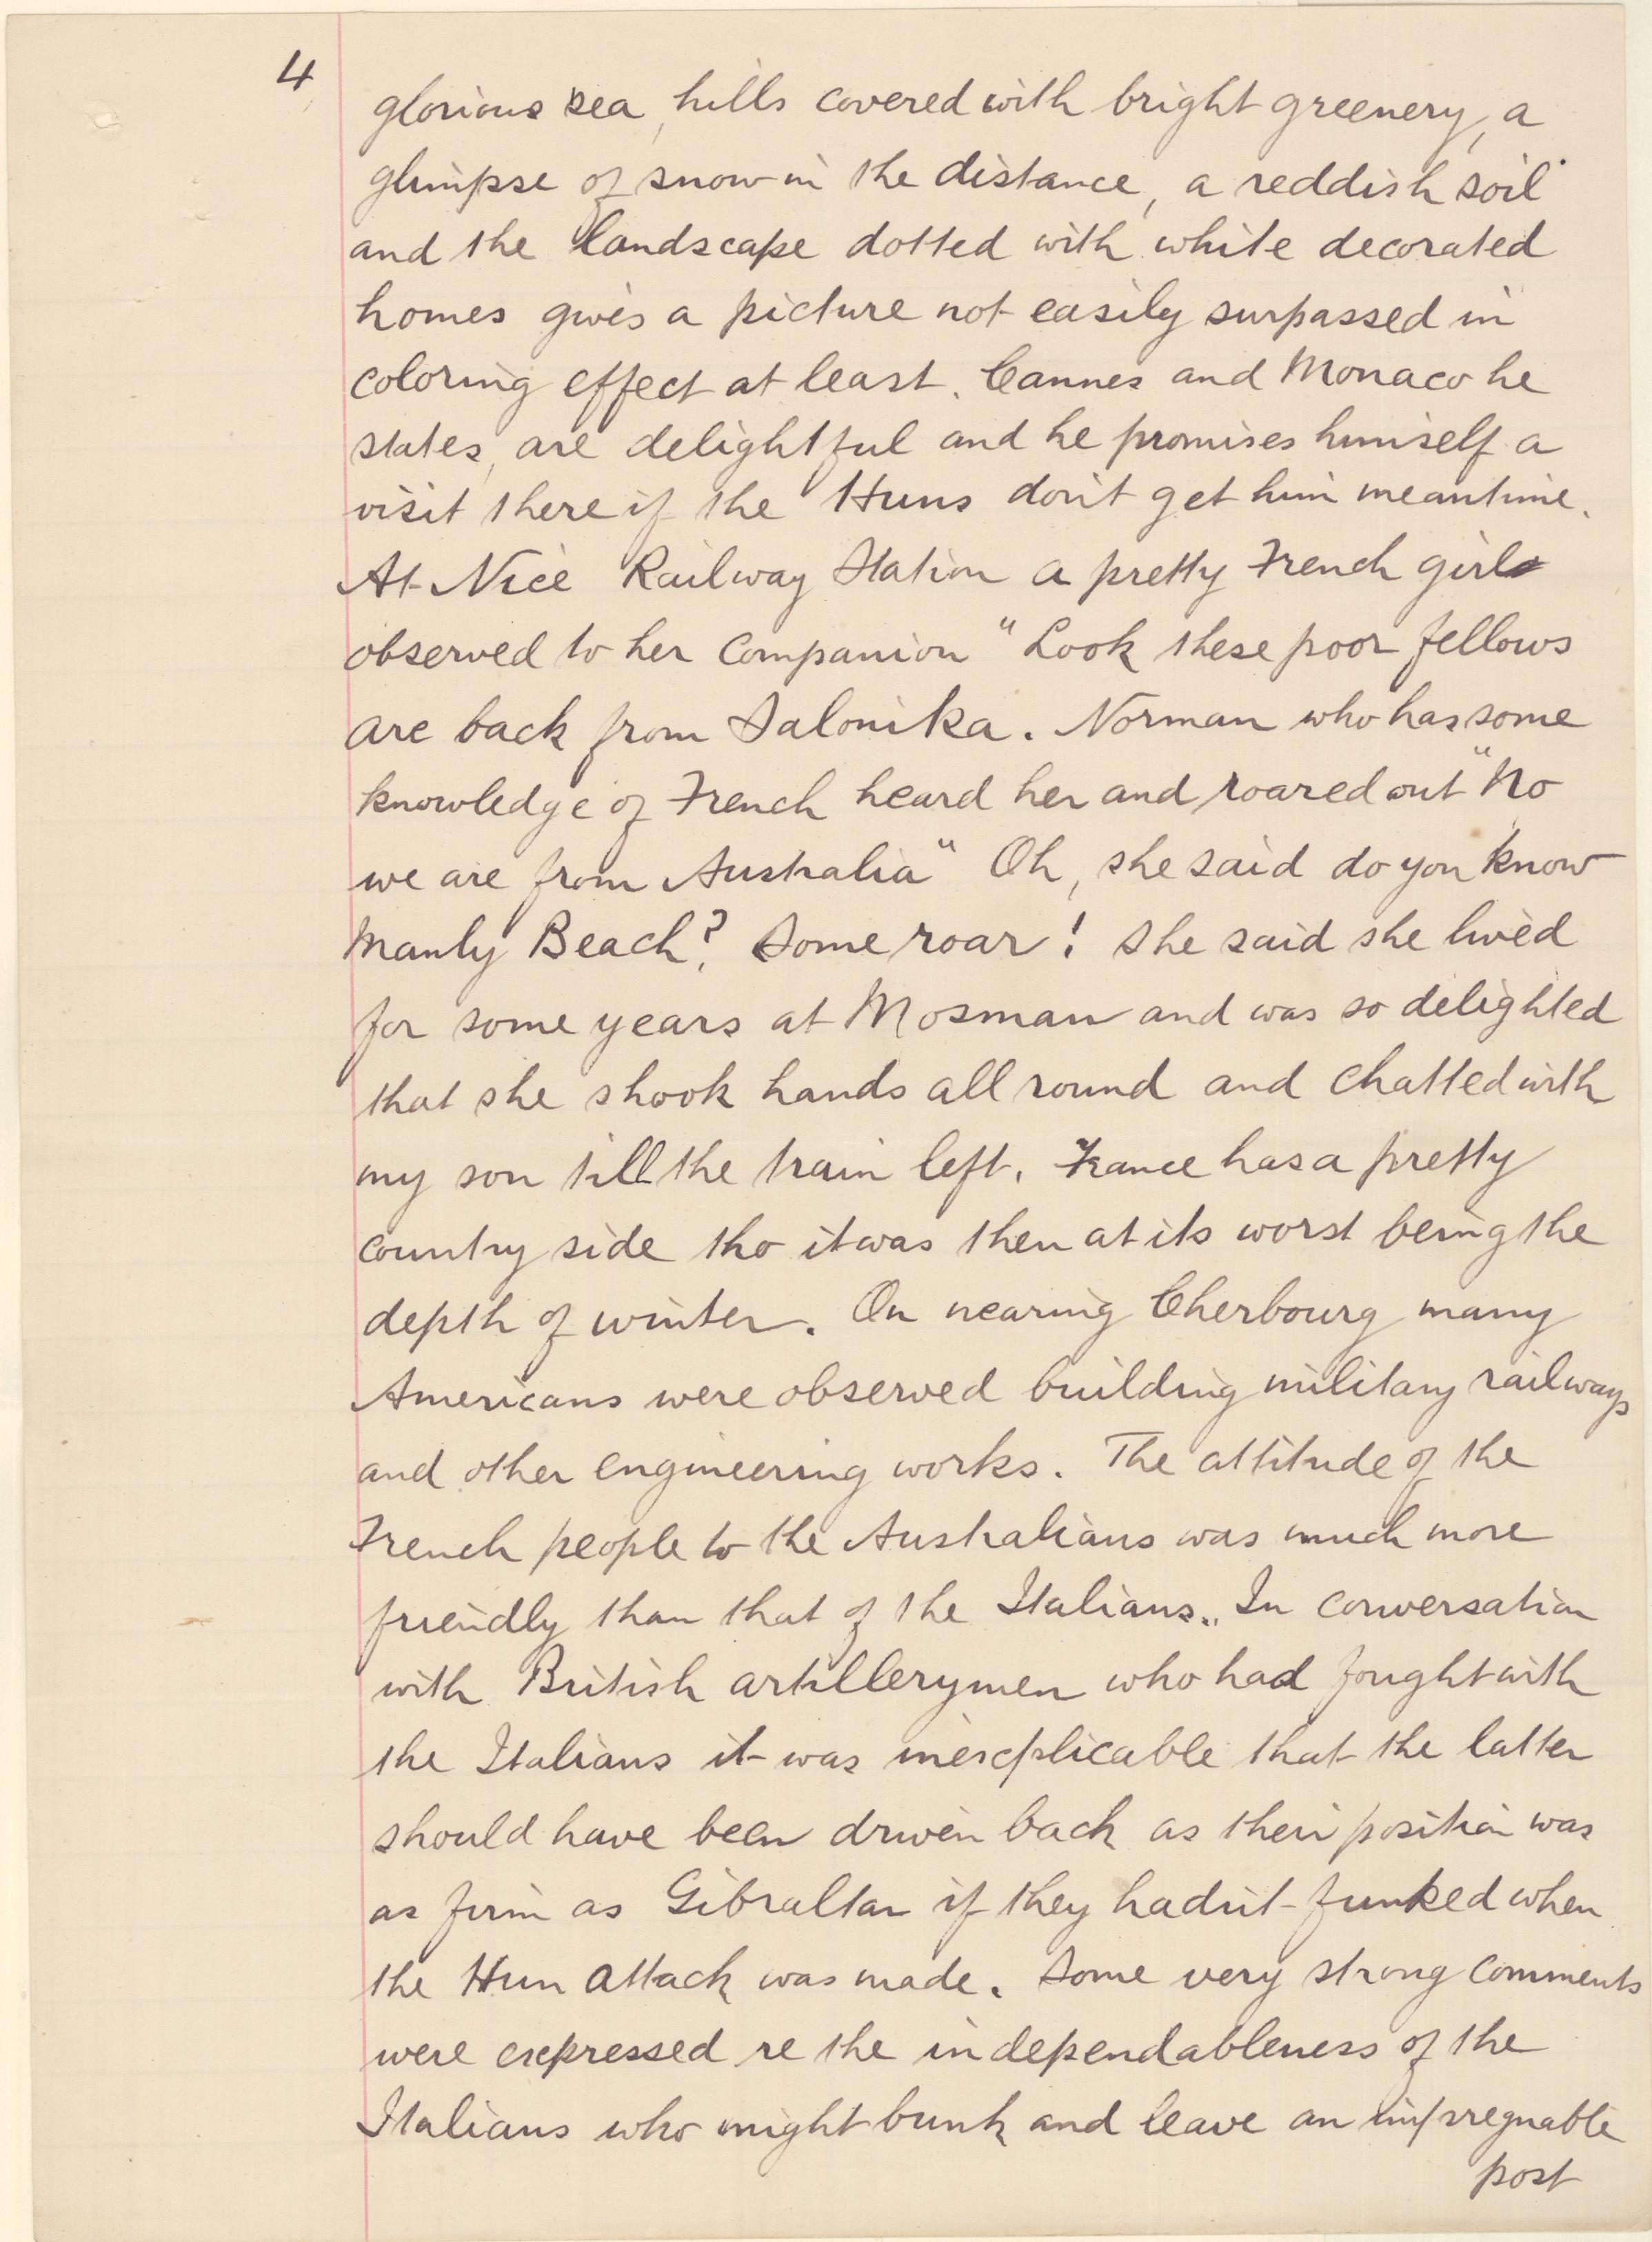 4
glorious sea, hills covered with bright greenery, a
glimpse of snow in the distance, a reddish soil
and the landscape dotted with white decorated
homes gives a picture not easily surpassed in
coloring effect at least. Cannes and Monaco he
states, are delightful and he promises himself a
visit there if the Huns don't get him meantime.
At Nice Railway Station a pretty French girl
observed to her companion "Look these poor fellows
are back from Salonika. Norman who has some
knowledge of French heard her and roared out "No
we are from Australia" Oh, she said do you know
Manly Beach? Some roar! She said she lived
for some years at Mosman and was so delighted
that she shook hands all round and chatted with
my son till the train left. France has a pretty
country side tho it was then at its worst being the
depth of winter. On nearing Cherbourg many
Americans were observed building military railways
and other engineering works. The attitude of the
French people to the Australians was much more
friendly than that of the Italians. In conversation
with British artillerymen who had fought with
the Italians it was inexplicable that the latter
should have been driven back as their position was
as firm as Gibraltar if they hadn't funked when
the Hun attack was made. Some very strong comments
were expressed re the independableness of the
Italians who might bunk and leave an impregnable
post